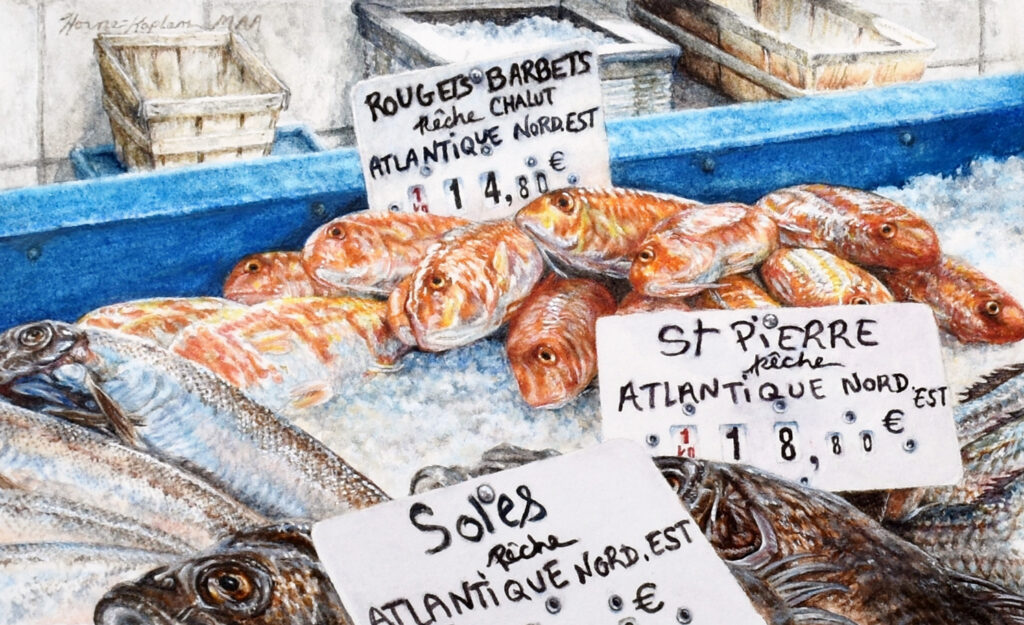 Howse-Kaplan MAA
ROUGETS BARBETS
Pêche CHALUT
ATLANTIQUE NORD.EST
1 kg 14,80 €
St PiERRE
Pêche
ATLANTIQUE NORD.EST
1 kg 18,80 €
Soles
Pêche
ATLANTIQUE NORD.EST
€